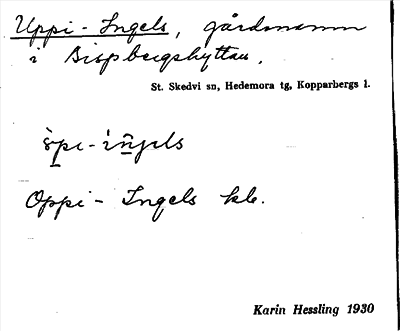 Uppi-Ingels, gårdsnamn
i Bispbergshyttan.
St. Skedvi sn, Hedemora tg, Kopparbergs l.
Oppi-Ingels kb.
Karin Hessling 1930